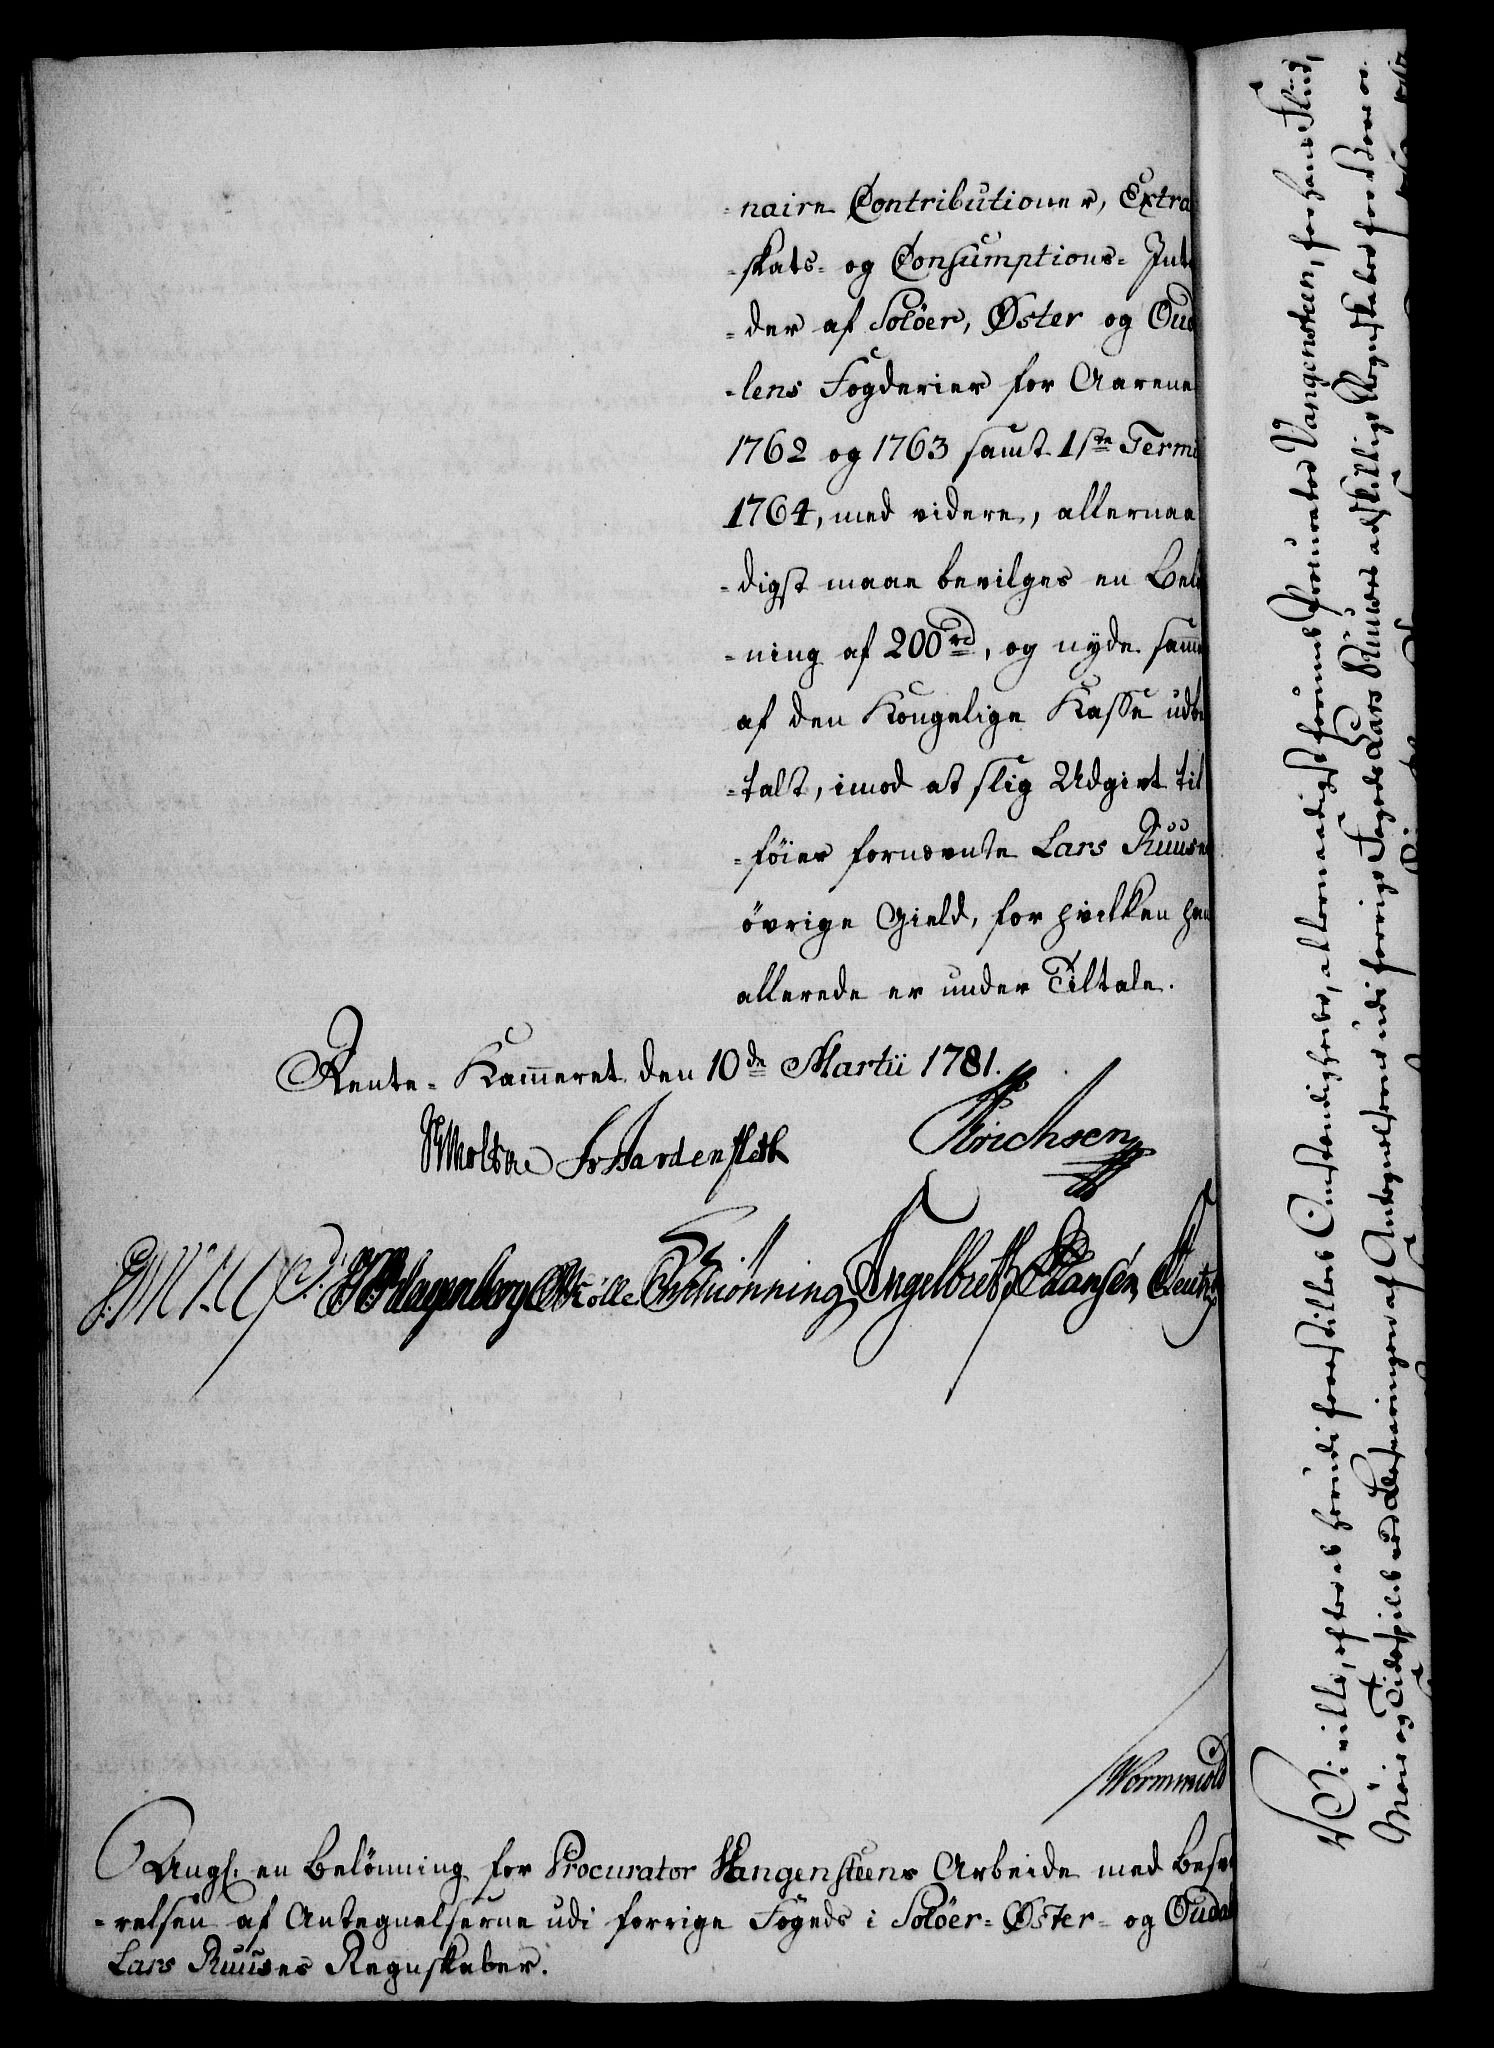 -naire Contributioner, Extra
-skats- og Consumptions- Inte
-der af Solöer, Øster og Oud
-lens Fogderier for Aarene
1762 og 1763 samt 1ste Termi
1764, med videre, allernaa
-digst maae bevilges en Belö
-ning af 200 rd, og nyde samme
af den Kongelige Kasse udbe
-talt, imod at slig Udgivt til
-föies fornævnte Lars Ruuses
övrige Gield, for hvilken han
allerede er under Tiltale.
Rente-Kammeret den 10de Martii 1781.
Moltke JvHardenfleth Erichsen
Hagenberg Kølle Schiønning Engelbreth Hansén
Wormwold
Ang. en Belönning for Procurator Wangensteens Arbeide med Besva
-relsen af Antegnelserne udi forrige Fogeds i Solöer- Øster- og Oudal
Lars Ruuses Regnskaber.
Vi ville, efter det herudi forestillede Omstændigheder, allernaadigst forunde Procurator Vangensteen, for hans Fliid,
Möie og Tidsspilde ved Besvaringen af Antegnelserne udi forrige Foged Lars Ruuses adskillige Regnskaber for